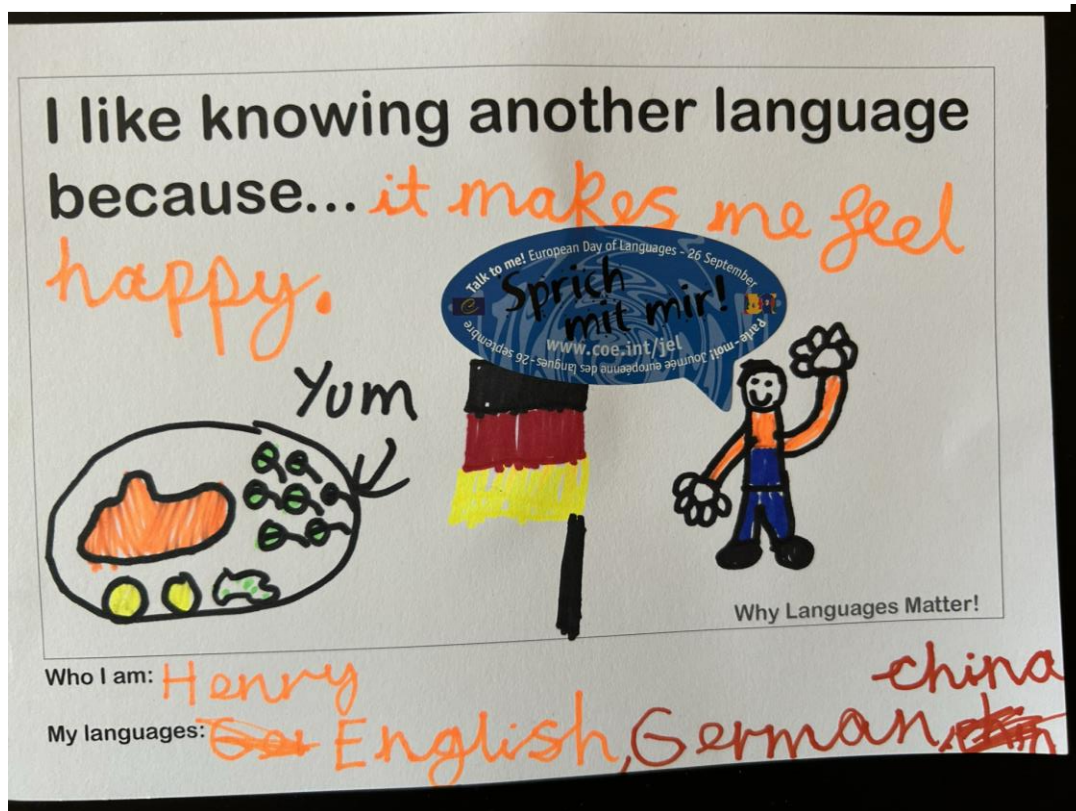 I like knowing another language
because... it makes me feel
happy.
Talk to me! European Day of Languages - 26 September
Sprich
mit mir!
www.coe.int/jel
Parle-moi! Journée européenne des langues - 26 septembre
Yum
Why Languages Matter!
Who I am: Henry
china
My languages: English, German,